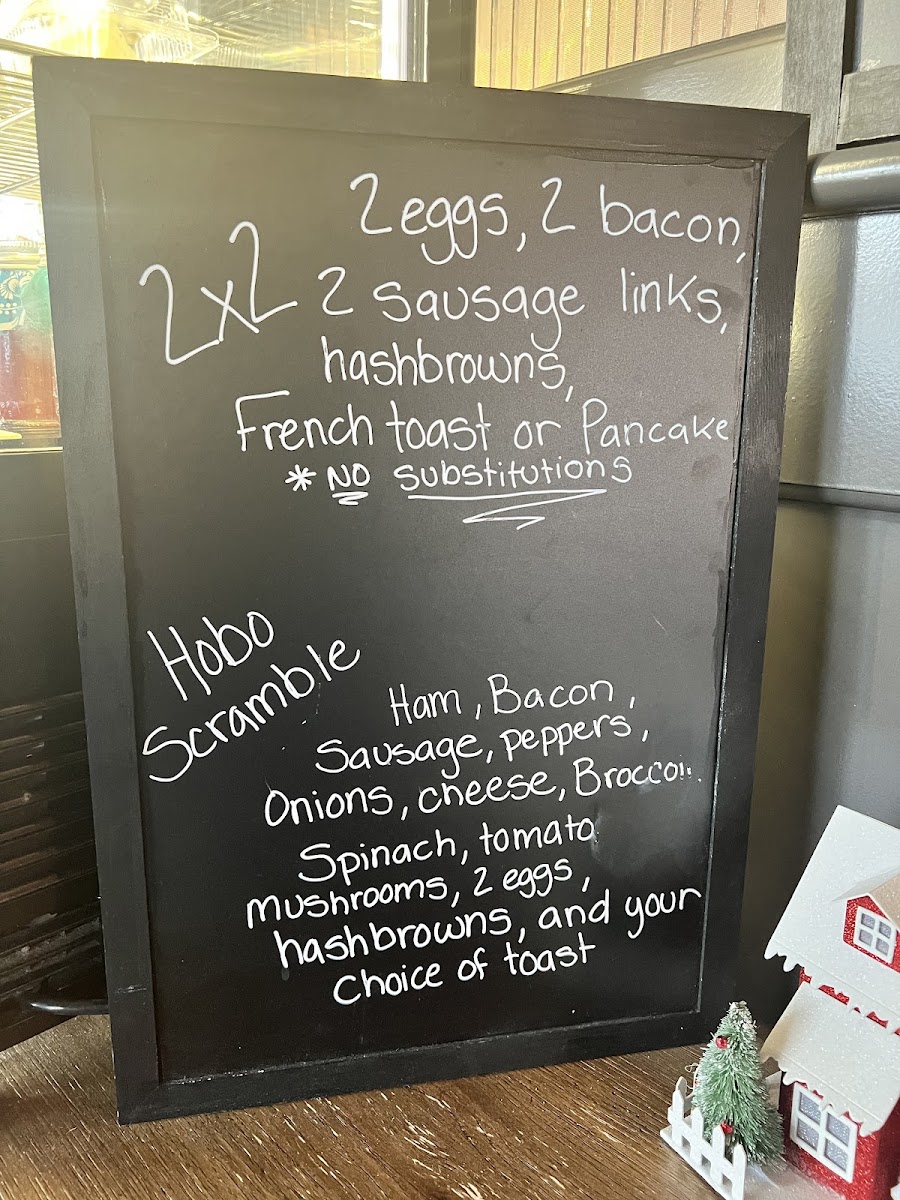 2x2
2 eggs, 2 bacon,
2 sausage links,
hashbrowns,
French toast or Pancake
* NO substitutions
Hobo
Scramble
Ham, Bacon,
Sausage, peppers,
Onions, cheese, Broccoli,
Spinach, tomato
mushrooms, 2 eggs,
hashbrowns, and your
choice of toast